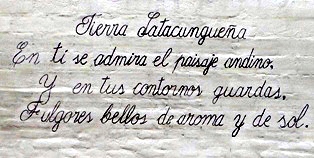 Tierra Latacungueña
En ti se admira el paisaje andino.
Y en tus contornos guardas.
Fulgores bellos de aroma y de sol.